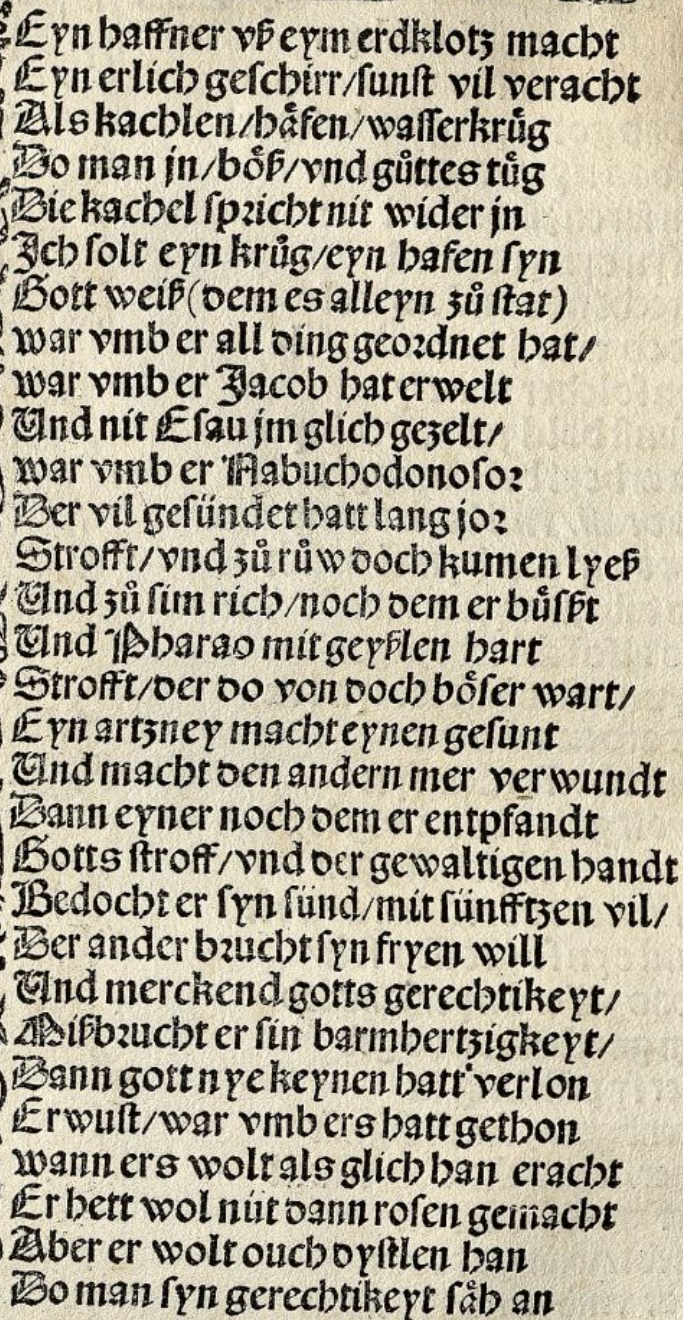 Eyn haffner vß eym erdklotz macht
Eyn erlich geschirr/sunst vil veracht
Als kachlen/haͤfen/wasserkruͤg
Do man jn/boͤß/vnd guͦttes tuͤg
Die kachel spricht nit wider jn
Ich solt eyn kruͦg/eyn hafen syn
Gott weiß (dem es alleyn zuͦ stat)
war vmb er all ding geordnet hat/
war vmb er Jacob hat erwelt
Und nit Esau jm glich gezelt/
war vmb er Nabuchodonosor
Der vil gesündet hatt lang jor
Strofft/vnd zuͦ ruͦw doch kumen lyeß
Und zuͦ sim rich/noch dem er buͤßt
Und Pharao mit geyßlen hart
Strofft/der do von doch boͤser wart/
Eyn artzney macht eynen gesunt
Und macht den andern mer verwundt
Dann eyner noch dem er entpfandt
Gotts stroff/vnd der gewaltigen handt
Bedocht er syn sünd/mit sünfftzen vil/
Der ander brucht syn fryen will
Und merckend gotts gerechtikeyt/
Mißbrucht er sin barmhertzigkeyt/
Dann gott nye keynen hatt verlon
Er wust/war vmb ers hatt gethon
wann ers wolt als glich han eracht
Er hett wol nüt dann rosen gemacht
Aber er wolt ouch dystlen han
Do man syn gerechtikeyt saͤh an